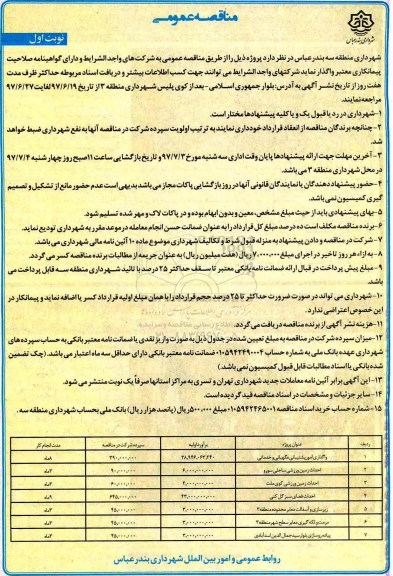 مناقصه عمومی
نوبت اول
شهرداری بندرعباس
شهرداری منطقه سه بندرعباس در نظر دارد پروژه ذیل را از طریق مناقصه عمومی به شرکت های واجد الشرایط و دارای گواهینامه صلاحیت
پیمانکاری معتبر واگذار نماید شرکتهای واجد الشرایط می توانند جهت کسب اطلاعات بیشتر و دریافت اسناد مربوطه حداکثر ظرف مدت
هفت روز از تاریخ نشر آگهی به آدرس: بلوار جمهوری اسلامی - بعد از کوی پلیس شهرداری منطقه ۳ از تاریخ ۹۷/۶/۱۹ لغایت ۹۷/۶/۲۷
مراجعه نمایند.
۱- شهرداری در رد یا قبول یک و یا کلیه پیشنهادها مختار است.
۲- چنانچه برندگان مناقصه از انعقاد قرارداد خودداری نمایند به ترتیب اولویت سپرده شرکت در مناقصه آنها به نفع شهرداری ضبط خواهد
شد.
۳- آخرین مهلت جهت ارائه پیشنهادها پایان وقت اداری سه شنبه مورخ ۹۷/۷/۳ و تاریخ بازگشایی ساعت ۱۱ صبح روز چهار شنبه ۹۷/۷/۴
در محل شهرداری منطقه ۳ می باشد.
۴- حضور پیشنهاد دهندگان یا نمایندگان قانونی آنها در روز بازگشایی پاکات مجاز می باشد بدیهی است عدم حضور مانع از تشکیل و تصمیم
گیری کمیسیون نمی باشد.
۵- بهای پیشنهادی باید از حیث مبلغ مشخص، معین و بدون ابهام بوده و در پاکات لاک و مهر شده تسلیم شود.
۶- برنده مناقصه مکلف است ده درصد مبلغ کل قرارداد را به عنوان ضمانت حسن انجام معامله در موعد مقرر به شهرداری تودیع نماید.
۷- شرکت در مناقصه و دادن پیشنهاد به منزله قبول شروط و تکالیف شهرداری موضوع ماده ۱۰ آئین نامه مالی شهرداری می باشد.
۸- به ازاء هر روز تاخیر در اجرای مبلغ ۷.۰۰۰.۰۰۰ ریال (هفت میلیون ریال) به عنوان جریمه از مطالبات برنده مناقصه کسر می گردد.
۹- مبلغ پیش پرداخت در قبال ارائه ضمانت نامه بانکی معتبر تا سقف حداکثر ۲۵ درصد با تائید شهرداری منطقه سه قابل پرداخت می
باشد.
۱۰- شهرداری می تواند در صورت ضرورت حداکثر تا ۲۵ درصد حجم قرارداد را با همان مبلغ اولیه قرارداد کسر یا اضافه نماید و پیمانکار در
این خصوص اعتراضی ندارد.
۱۱- هزینه نشر آگهی از برنده مناقصه دریافت می گردد.
۱۲- میزان سپرده شرکت در مناقصه به مبلغ تعیین شده در جدول ذیل به صورت واریز نقدی یا ضمانت نامه معتبر بانکی به حساب سپرده های
شهرداری عهده بانک ملی به شماره حساب ۰۱۰۵۹۴۲۴۹۰۰۴ ضمانت نامه معتبر بانکی دارای حداقل سه ماه اعتبار می باشد. (چک تضمین
شده بانکی یا اسناد مطالبات قابل قبول کمیسیون نمی باشد.)
۱۳- این آگهی برابر آئین نامه معاملات جدید شهرداری تهران و تسری به مراکز استانها صرفاً یک نوبت منتشر می شود.
۱۴- سایر جزئیات و مشخصات در اسناد مناقصه قید گردیده است.
۱۵- شماره حساب خرید اسناد مناقصه ۰۱۰۵۹۴۲۴۶۵۰۰۱ مبلغ ۵۰۰.۰۰۰ ریال (پانصد هزار ریال) بانک ملی بحساب شهرداری منطقه سه.
ردیف عنوان پروژه برآورد اولیه سپرده شرکت در مناقصه مدت انجام کار
۱ واگذاری امور پشتیبانی نگهبانی و خدماتی
۲ احداث زمین ورزشی ساحلی سورو
۳ احداث زمین ورزشی کوی ملت
۴ احداث فضای سبز گل کنی
۵ زیرسازی و آسفالت معابر محدوده منطقه ۳
۶ مرمت و لکه گیری معابر سطح شهر منطقه ۳
۷ پیاده روسازی بلوار سید جمال الدین اسدآبادی
روابط عمومی و امور بین الملل شهرداری بندرعباس